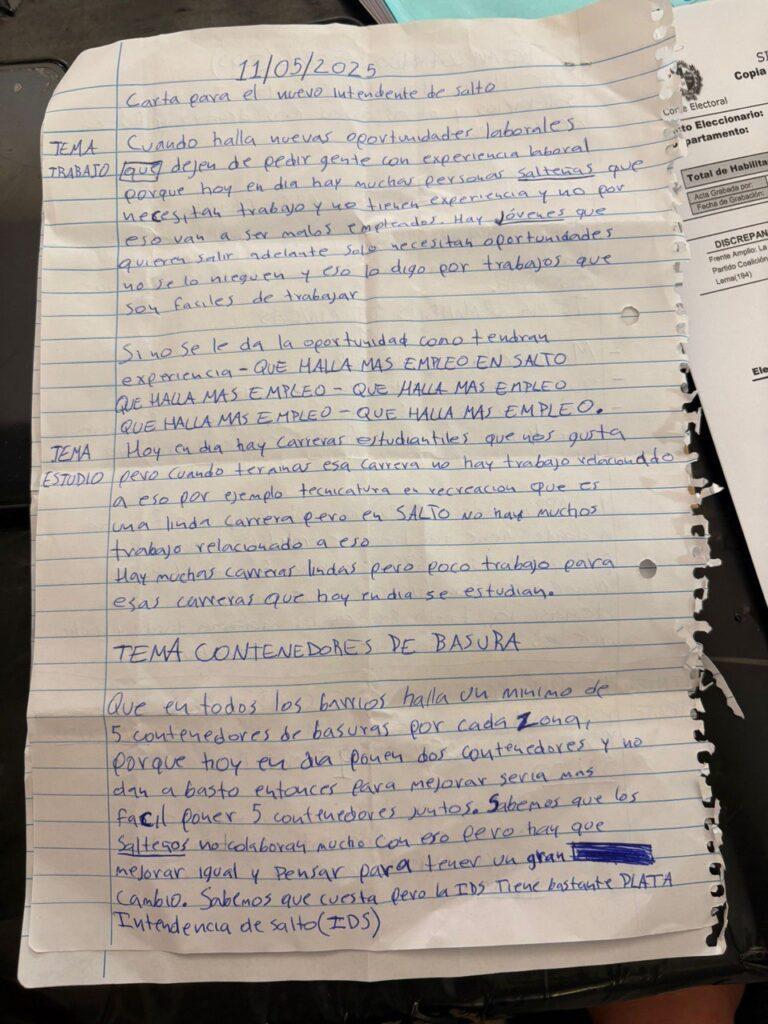 11/05/2025
Carta para el nuevo intendente de salto
TEMA TRABAJO
Cuando halla nuevas oportunidades laborales
que dejen de pedir gente con experiencia laboral
porque hoy en dia hay muchas personas salteñas que
necesitan trabajo y no tienen experiencia y no por
eso van a ser malos empleados. Hay jóvenes que
quieren salir adelante solo necesitan oportunidades
no se lo nieguen y eso lo digo por trabajos que
son faciles de trabajar
Si no se le da la oportunidad como tendran
experiencia - QUE HALLA MAS EMPLEO EN SALTO
QUE HALLA MAS EMPLEO - QUE HALLA MAS EMPLEO
QUE HALLA MAS EMPLEO - QUE HALLA MAS EMPLEO.
TEMA ESTUDIO
Hoy en dia hay carreras estudiantiles que nos gusta
pero cuando terminas esa carrera no hay trabajo relacionado
a eso por ejemplo tecnicatura en recreacion que es
una linda carrera pero en SALTO no hay muchos
trabajo relacionado a eso
Hay muchas carreras lindas pero poco trabajo para
esas carreras que hoy en dia se estudian.
TEMA CONTENEDORES DE BASURA
Que en todos los barrios halla un minimo de
5 contenedores de basuras por cada zona,
porque hoy en dia ponen dos contenedores y no
dan a basto entonces para mejorar seria mas
facil poner 5 contenedores juntos. Sabemos que los
salteños no colaboran mucho con eso pero hay que
mejorar igual y pensar para tener un gran
cambio. Sabemos que cuesta pero la IDS Tiene bastante PLATA
Intendencia de salto (IDS)
Copia
Corte Electoral
to Eleccionario:
partamento:
Total de Habilita
Acta Grabada por:
Fecha de Grabación:
DISCREPAN
Frente Amplio: La
Partido Coalición
Lema(194)
Ele